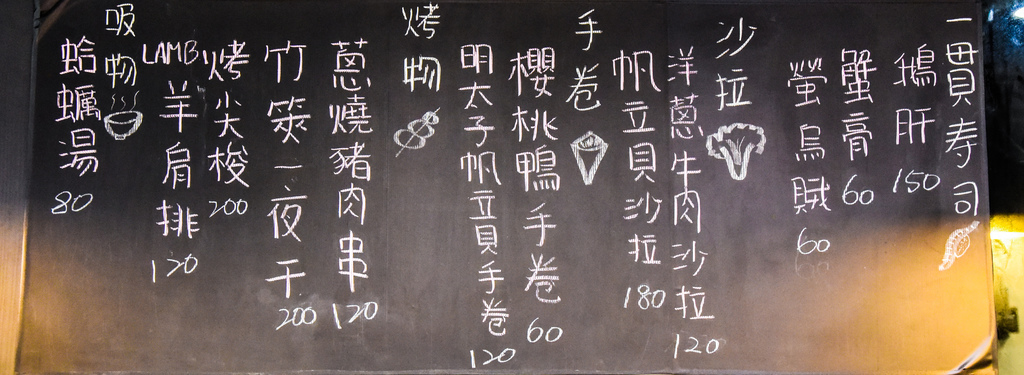 一貫寿司
鵝肝 150
蟹膏 60
螢烏賊 60
沙拉
洋蔥牛肉沙拉 120
帆立貝沙拉 180
手卷
櫻桃鴨手卷 60
明太子帆立貝手卷 120
烤物
蔥燒豬肉串 120
竹筴一夜干 200
烤尖梭 200
LAMB羊肩排 120
吸物
蛤蠣湯 80